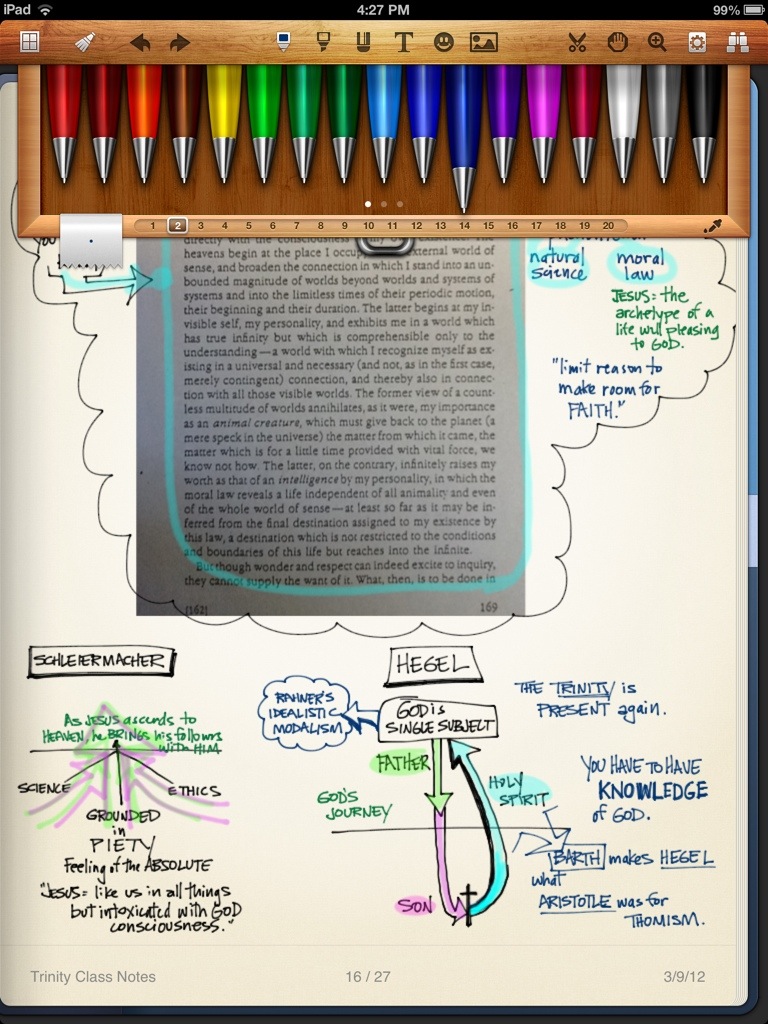 iPad
4:27 PM
99%
T
1 2 3 4 5 6 7 8 9 10 11 12 13 14 15 16 17 18 19 20
directly with the consciousness
heavens begin at the place I occupy external world of
sense, and broaden the connection in which I stand into an un-
bounded magnitude of worlds beyond worlds and systems of
systems and into the limitless times of their periodic motion,
their beginning and their duration. The latter begins at my in-
visible self, my personality, and exhibits me in a world which
has true infinity but which is comprehensible only to the
understanding—a world with which I recognize myself as ex-
isting in a universal and necessary (and not, as in the first case,
merely contingent) connection, and thereby also in connec-
tion with all those visible worlds. The former view of a count-
less multitude of worlds annihilates, as it were, my importance
as an animal creature, which must give back to the planet (a
mere speck in the universe) the matter from which it came, the
matter which is for a little time provided with vital force, we
know not how. The latter, on the contrary, infinitely raises my
worth as that of an intelligence by my personality, in which the
moral law reveals a life independent of all animality and even
of the whole world of sense—at least so far as it may be in-
ferred from the final destination assigned to my existence by
this law, a destination which is not restricted to the conditions
and boundaries of this life but reaches into the infinite.
But though wonder and respect can indeed excite to inquiry,
they cannot supply the want of it. What, then, is to be done in
[162]
169
natural
science
moral
law
JESUS: the
archetype of a
life well pleasing
to GOD.
"limit reason to
make room for
FAITH."
SCHLEIERMACHER
As JESUS ascends to
HEAVEN, he BRINGS his followers
WITH HIM.
SCIENCE
ETHICS
GROUNDED
in
PIETY
Feeling of the ABSOLUTE
"JESUS= like us in all things
but intoxicated with GOD
consciousness."
HEGEL
RAHNER'S
IDEALISTIC
MODALISM
GOD is
SINGLE SUBJECT
FATHER
HOLY
SPIRIT
GOD'S
JOURNEY
SON
THE TRINITY is
PRESENT again.
YOU HAVE TO HAVE
KNOWLEDGE
of GOD.
BARTH makes HEGEL
what
ARISTOTLE was for
THOMISM.
Trinity Class Notes
16 / 27
3/9/12